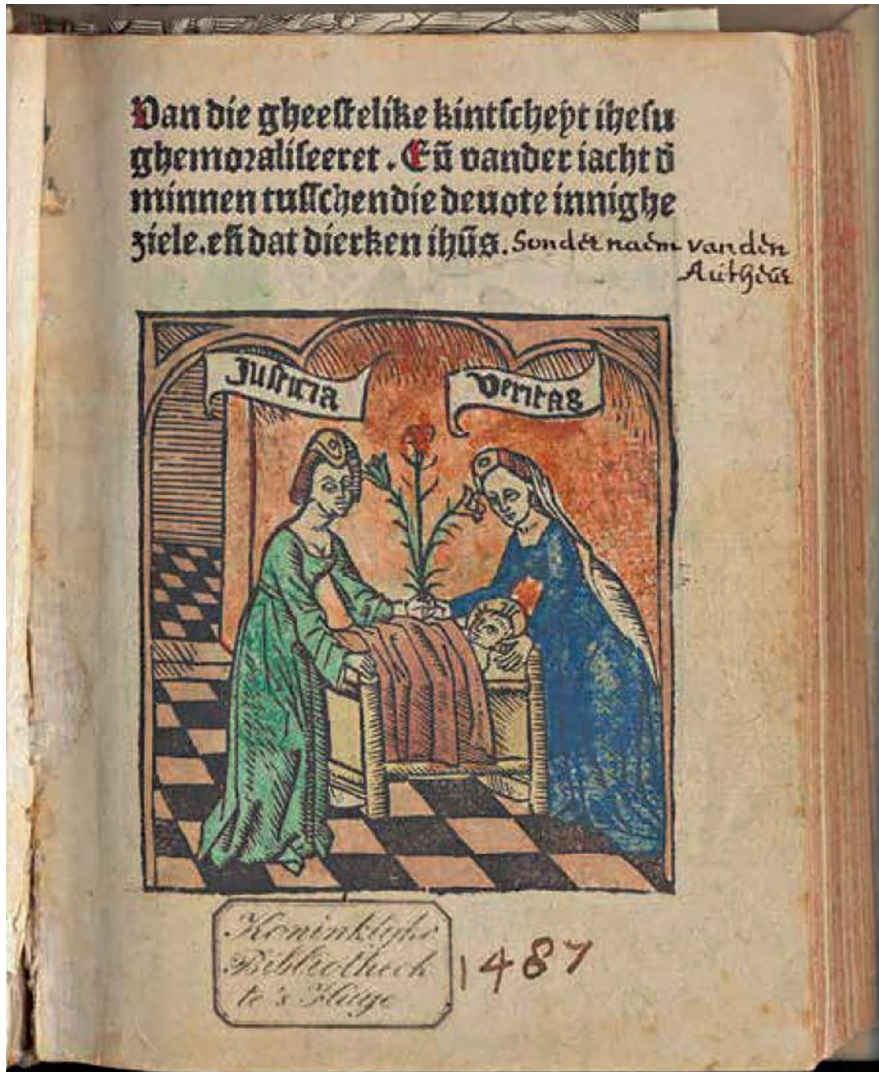 Van die gheestelike kintscheyt ihesu
ghemoraliseeret . Eñ vander iacht đ
minnen tusschen die deuote innighe
ziele. eñ dat dierken ihūs. Sonder naem van den
Autheur
Justicia
Veritas
Koninklijke
Bibliotheek
te 's Hage
1487